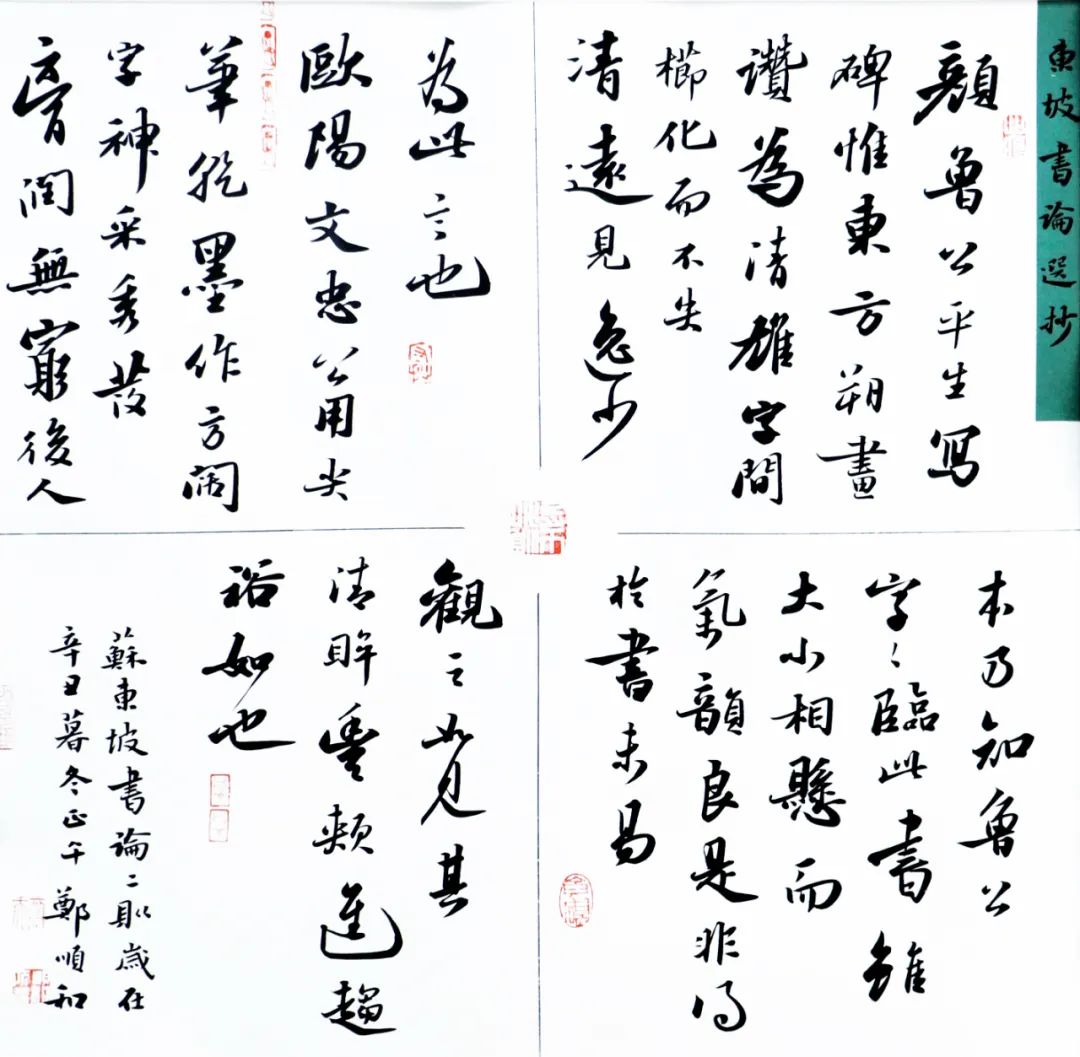 東坡書論選抄
顏魯公平生寫
碑惟東方朔畫
讚為清雄字間
櫛化而不失
清遠見逸少
本乃知魯公
字〻臨此書雖
大小相懸而
氣韻良是非得
於書未易
為此言也
歐陽文忠公用尖
筆乾墨作方闊
字神采秀發
膏潤無窮後人
觀之如見其
清眸豐頰進趨
裕如也
蘇東坡書論二則歲在
辛丑暮冬正午鄭順和